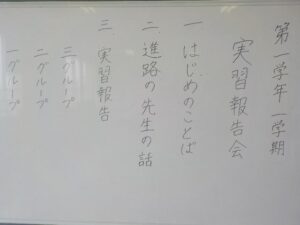 第一学年 一学期
実習報告会
一、はじめのことば
二、進路の先生の話
三、実習報告
三グループ
二グループ
一グループ